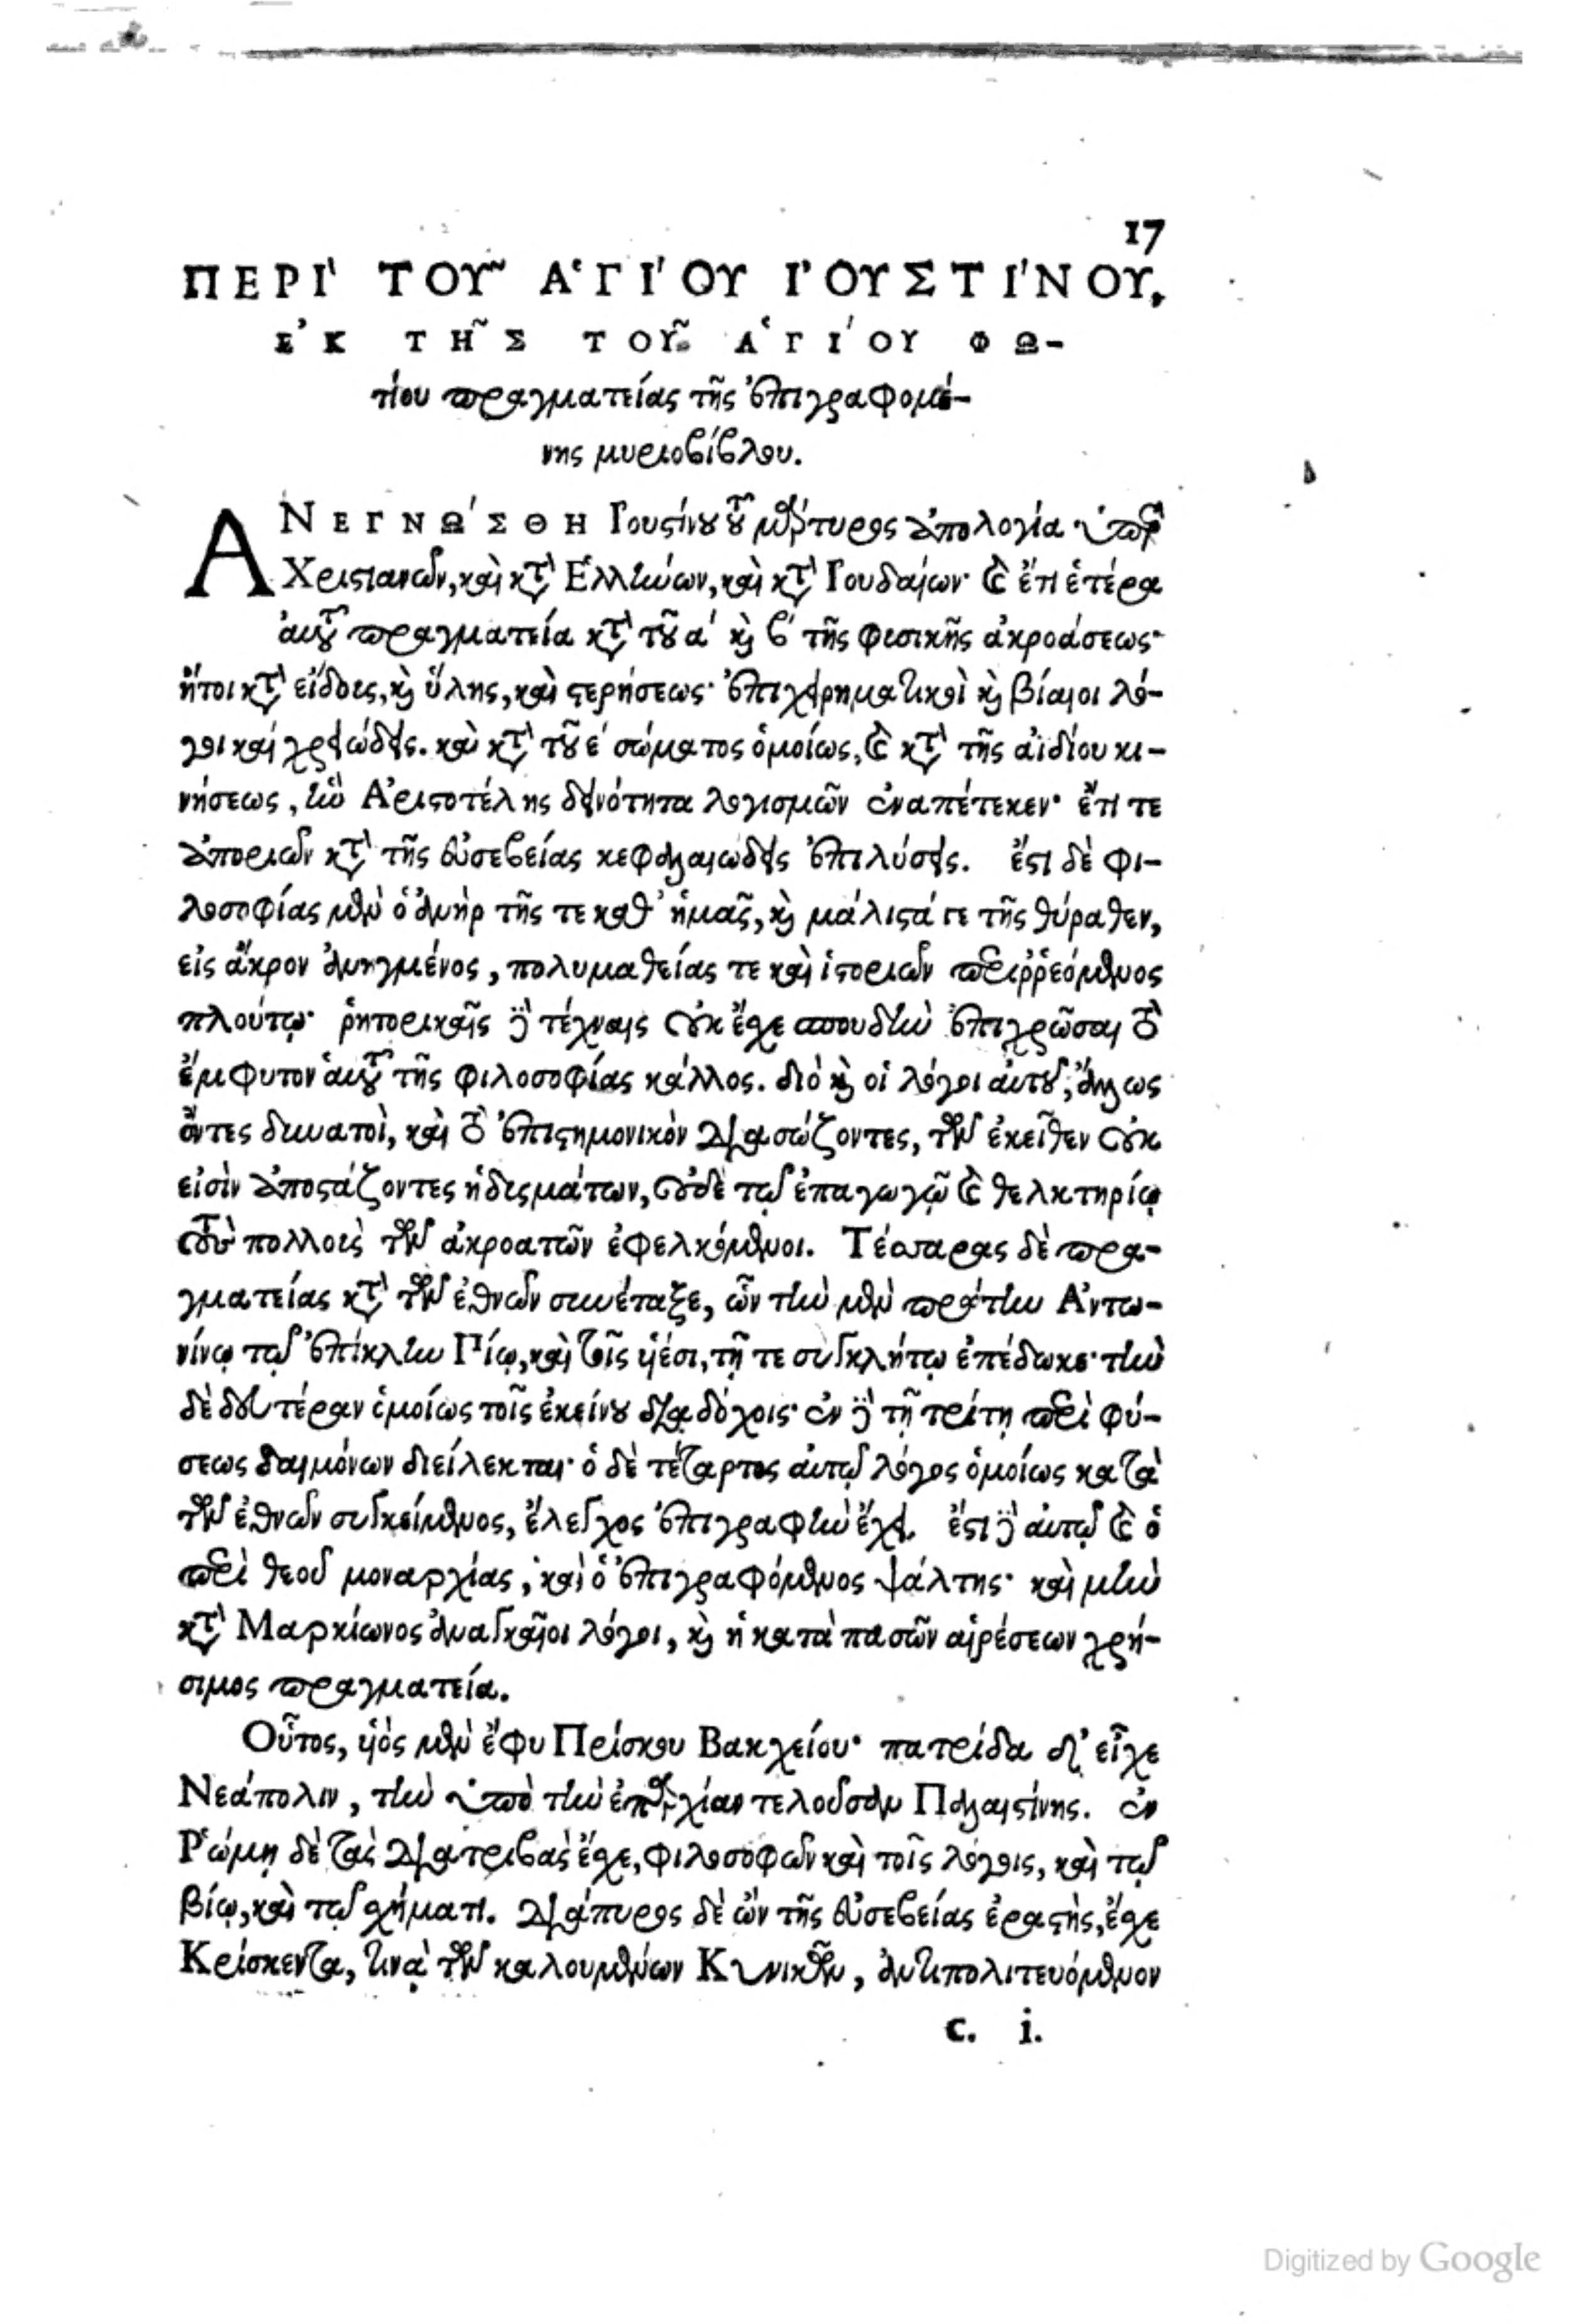 17
ΠΕΡΙ` ΤΟΥ῀ Α῾ΓΙ´ΟΥ Ι᾿ΟΥΣΤΙ´ΝΟΥ,
Ε᾿Κ ΤΗ῀Σ ΤΟΥ῀ Α῾ΓΙ´ΟΥ ΦΩ-
τίου πραγματείας τῆς ἐπιγραφομέ-
νης μυριοβίβλου.
ΑΝΕΓΝΩ´ΣΘΗ Ἰουστίνου τοῦ μάρτυρος ἀπολογία ὑπὲρ
Χριστιανῶν, καὶ κατὰ Ἑλλήνων, καὶ κατὰ Ἰουδαίων· καὶ ἔτι ἑτέρα
αὐτοῦ πραγματεία κατὰ τοῦ α´ καὶ β´ τῆς φυσικῆς ἀκροάσεως·
ἤτοι κατὰ εἴδους, καὶ ὕλης, καὶ στερήσεως· ἐπιχειρηματικοὶ καὶ βίαιοι λό-
γοι καὶ χρειώδεις. καὶ κατὰ τοῦ ε´ σώματος ὁμοίως, καὶ κατὰ τῆς ἀϊδίου κι-
νήσεως, ἣν Ἀριστοτέλης δεινότητα λογισμῶν ἐναπέτεκεν· ἔτι τε
ἀποριῶν κατὰ τῆς εὐσεβείας κεφαλαιώδεις ἐπιλύσεις. ἔστι δὲ φι-
λοσοφίας μὲν ὁ ἀνὴρ τῆς τε καθ᾽ ἡμᾶς, καὶ μάλιστά γε τῆς θύραθεν,
εἰς ἄκρον ἀνηγμένος, πολυμαθείας τε καὶ ἱστοριῶν περιῤῥεόμενος
πλούτῳ· ῥητορικαῖς δὲ τέχναις οὐκ ἔσχε σπουδὴν ἐπιχρῶσαι τὸ
ἔμφυτον αὐτοῦ τῆς φιλοσοφίας κάλλος. διὸ καὶ οἱ λόγοι αὐτοῦ, ἄλλως
ὄντες δυνατοὶ, καὶ τὸ ἐπιστημονικὸν διασώζοντες, τῶν ἐκεῖθεν οὐκ
εἰσὶν ἀποστάζοντες ἡδυσμάτων, οὐδὲ τῷ ἐπαγωγῷ καὶ θελκτηρίῳ
τοὺς πολλοὺς τῶν ἀκροατῶν ἐφελκόμενοι. Τέσσαρας δὲ πρα-
γματείας κατὰ τῶν ἐθνῶν συνέταξε, ὧν τὴν μὲν πρώτην Ἀντω-
νίνῳ τῷ ἐπίκλην Πίῳ, καὶ τοῖς υἱέσι, τῇ τε συγκλήτῳ ἐπέδωκε· τὴν
δὲ δευτέραν ὁμοίως τοῖς ἐκείνου διαδόχοις· ἐν δὲ τῇ τρίτῃ περὶ φύ-
σεως δαιμόνων διείλεκται· ὁ δὲ τέταρτος αὐτῷ λόγος ὁμοίως κατὰ
τῶν ἐθνῶν συγκείμενος, ἔλεγχος ἐπιγραφὴν ἔχει. ἔστι δὲ αὐτῷ καὶ ὁ
περὶ θεοῦ μοναρχίας, καὶ ὁ ἐπιγραφόμενος ψάλτης· καὶ μὴν
κατὰ Μαρκίωνος ἀναγκαῖοι λόγοι, καὶ ἡ κατὰ πασῶν αἱρέσεων χρή-
σιμος πραγματεία.
Οὗτος, υἱὸς μὲν ἔφυ Πρίσκου Βακχείου· πατρίδα δ᾽ εἶχε
Νεάπολιν, τὴν ὑπὸ τὴν ἐπαρχίαν τελοῦσαν Παλαιστίνης. ἐν
Ῥώμῃ δὲ τὰς διατριβὰς ἔσχε, φιλοσοφῶν καὶ τοῖς λόγοις, καὶ τῷ
βίῳ, καὶ τῷ σχήματι. διάπυρος δὲ ὢν τῆς εὐσεβείας ἐραστὴς, ἔσχε
Κρίσκεντα, τινὰ τῶν καλουμένων Κυνικῶν, ἀντιπολιτευόμενον
c. i.
Digitized by Google